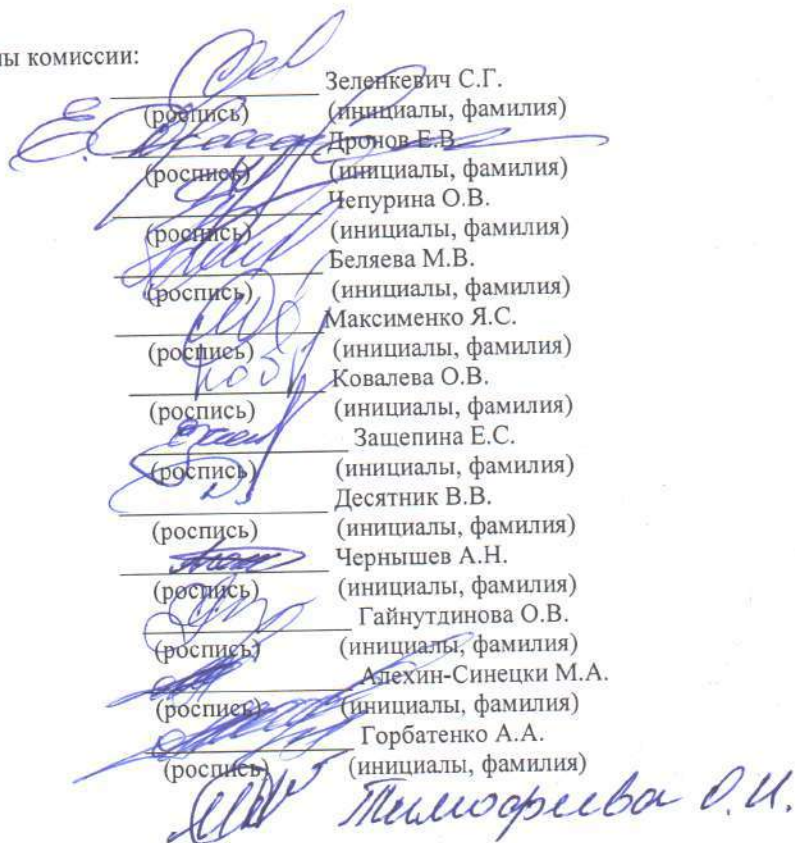 ны комиссии:
Зеленкевич С.Г.
(роспись) (инициалы, фамилия)
Дронов Е.В.
(роспись) (инициалы, фамилия)
Чепурина О.В.
(роспись) (инициалы, фамилия)
Беляева М.В.
(роспись) (инициалы, фамилия)
Максименко Я.С.
(роспись) (инициалы, фамилия)
Ковалева О.В.
(роспись) (инициалы, фамилия)
Защепина Е.С.
(роспись) (инициалы, фамилия)
Десятник В.В.
(роспись) (инициалы, фамилия)
Чернышев А.Н.
(роспись) (инициалы, фамилия)
Гайнутдинова О.В.
(роспись) (инициалы, фамилия)
Алехин-Синецки М.А.
(роспись) (инициалы, фамилия)
Горбатенко А.А.
(роспись) (инициалы, фамилия)
Тимофеева О.И.